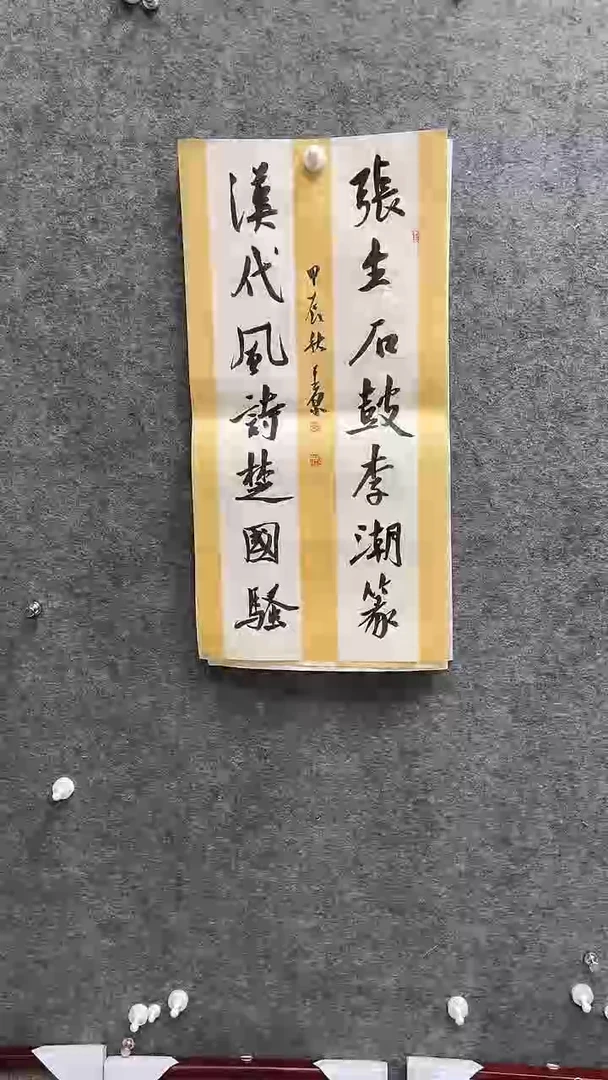 張生石鼓李潮篆
漢代風詩楚國騷
甲辰秋